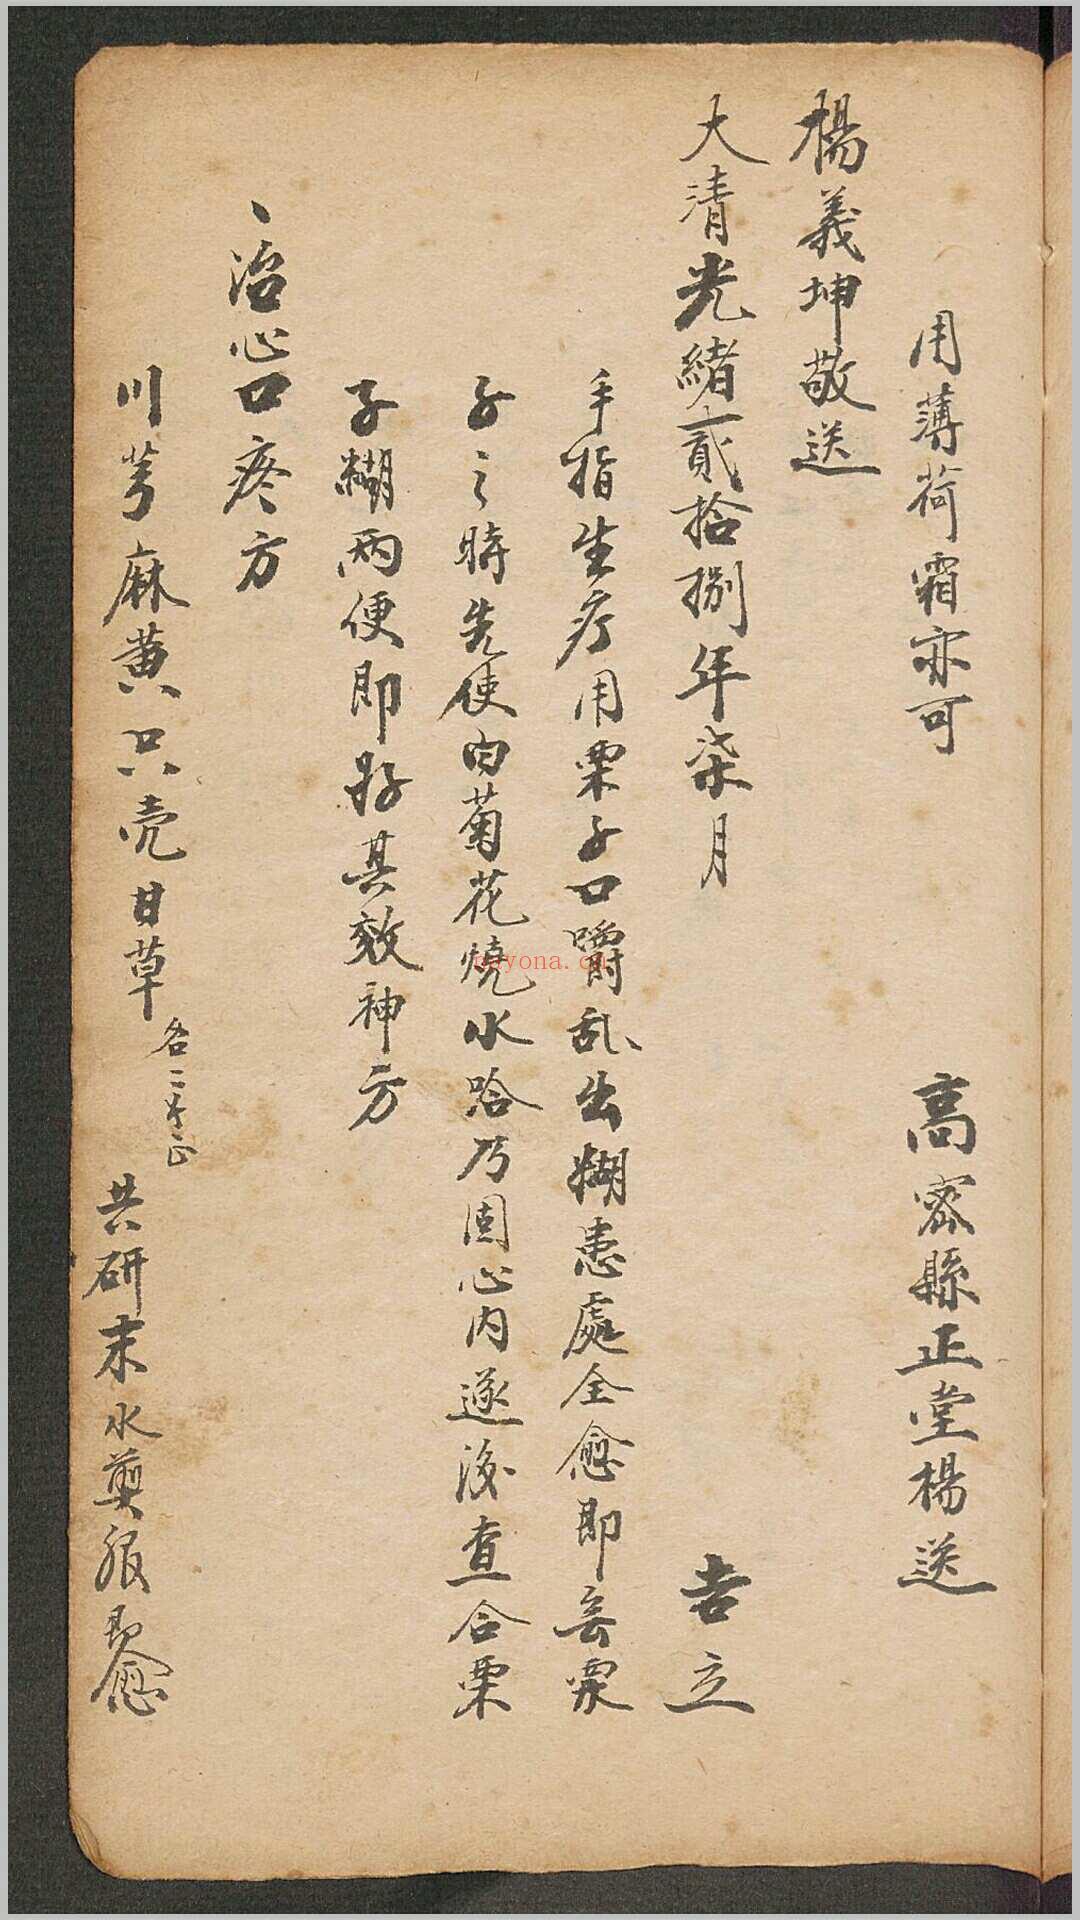 用薄荷霜亦可　高密縣正堂楊送
楊義坤敬送
大清光緒貳拾捌年柒月　吉立
手指生疔用栗子口嚼乱出糊患處全愈即妄栗
子之時先使白菊花燒水哈乃固心内遂後查合栗
子糊兩便即好其效神方
、治心口疼方
川芎麻黄只壳甘草各二共研末水煎服即愈